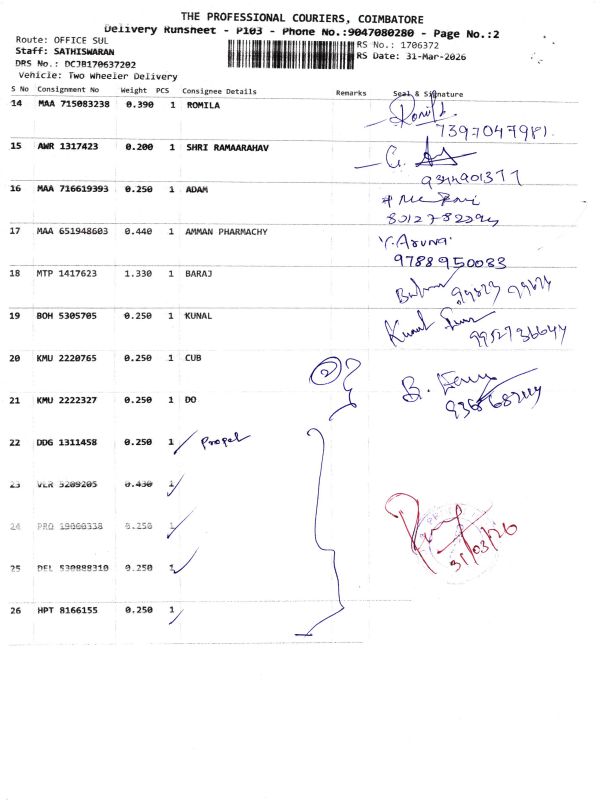 THE PROFESSIONAL COURIERS, COIMBATORE
Delivery Runsheet - P103 - Phone No.:9047080280 - Page No.:2
Route: OFFICE SUL
RS No.: 1706372
Staff: SATHISWARAN
RS Date: 31-Mar-2026
DRS No.: DCJB170637202
Vehicle: Two Wheeler Delivery
S No Consignment No Weight PCS Consignee Details Remarks Seal & Signature
14 MAA 715083238 0.390 1 ROMILA
7397047981.
15 AWR 1317423 0.200 1 SHRI RAMAARAHAV
9344901377
16 MAA 716619393 0.250 1 ADAM
17 MAA 651948603 0.440 1 AMMAN PHARMACHY
Y. Aruna.
9788950083
18 MTP 1417623 1.330 1 BARAJ
19 BOH 5305705 0.250 1 KUNAL
Kunal
9952736644
20 KMU 2220765 0.250 1 CUB
2
21 KMU 2222327 0.250 1 DO
22 DDG 1311458 0.250 1 Propel
23 VLR 5209205 0.430 1
24 PRO 19000338 0.250 1
25 DEL 530888310 0.250 1
31/03/26
26 HPT 8166155 0.250 1